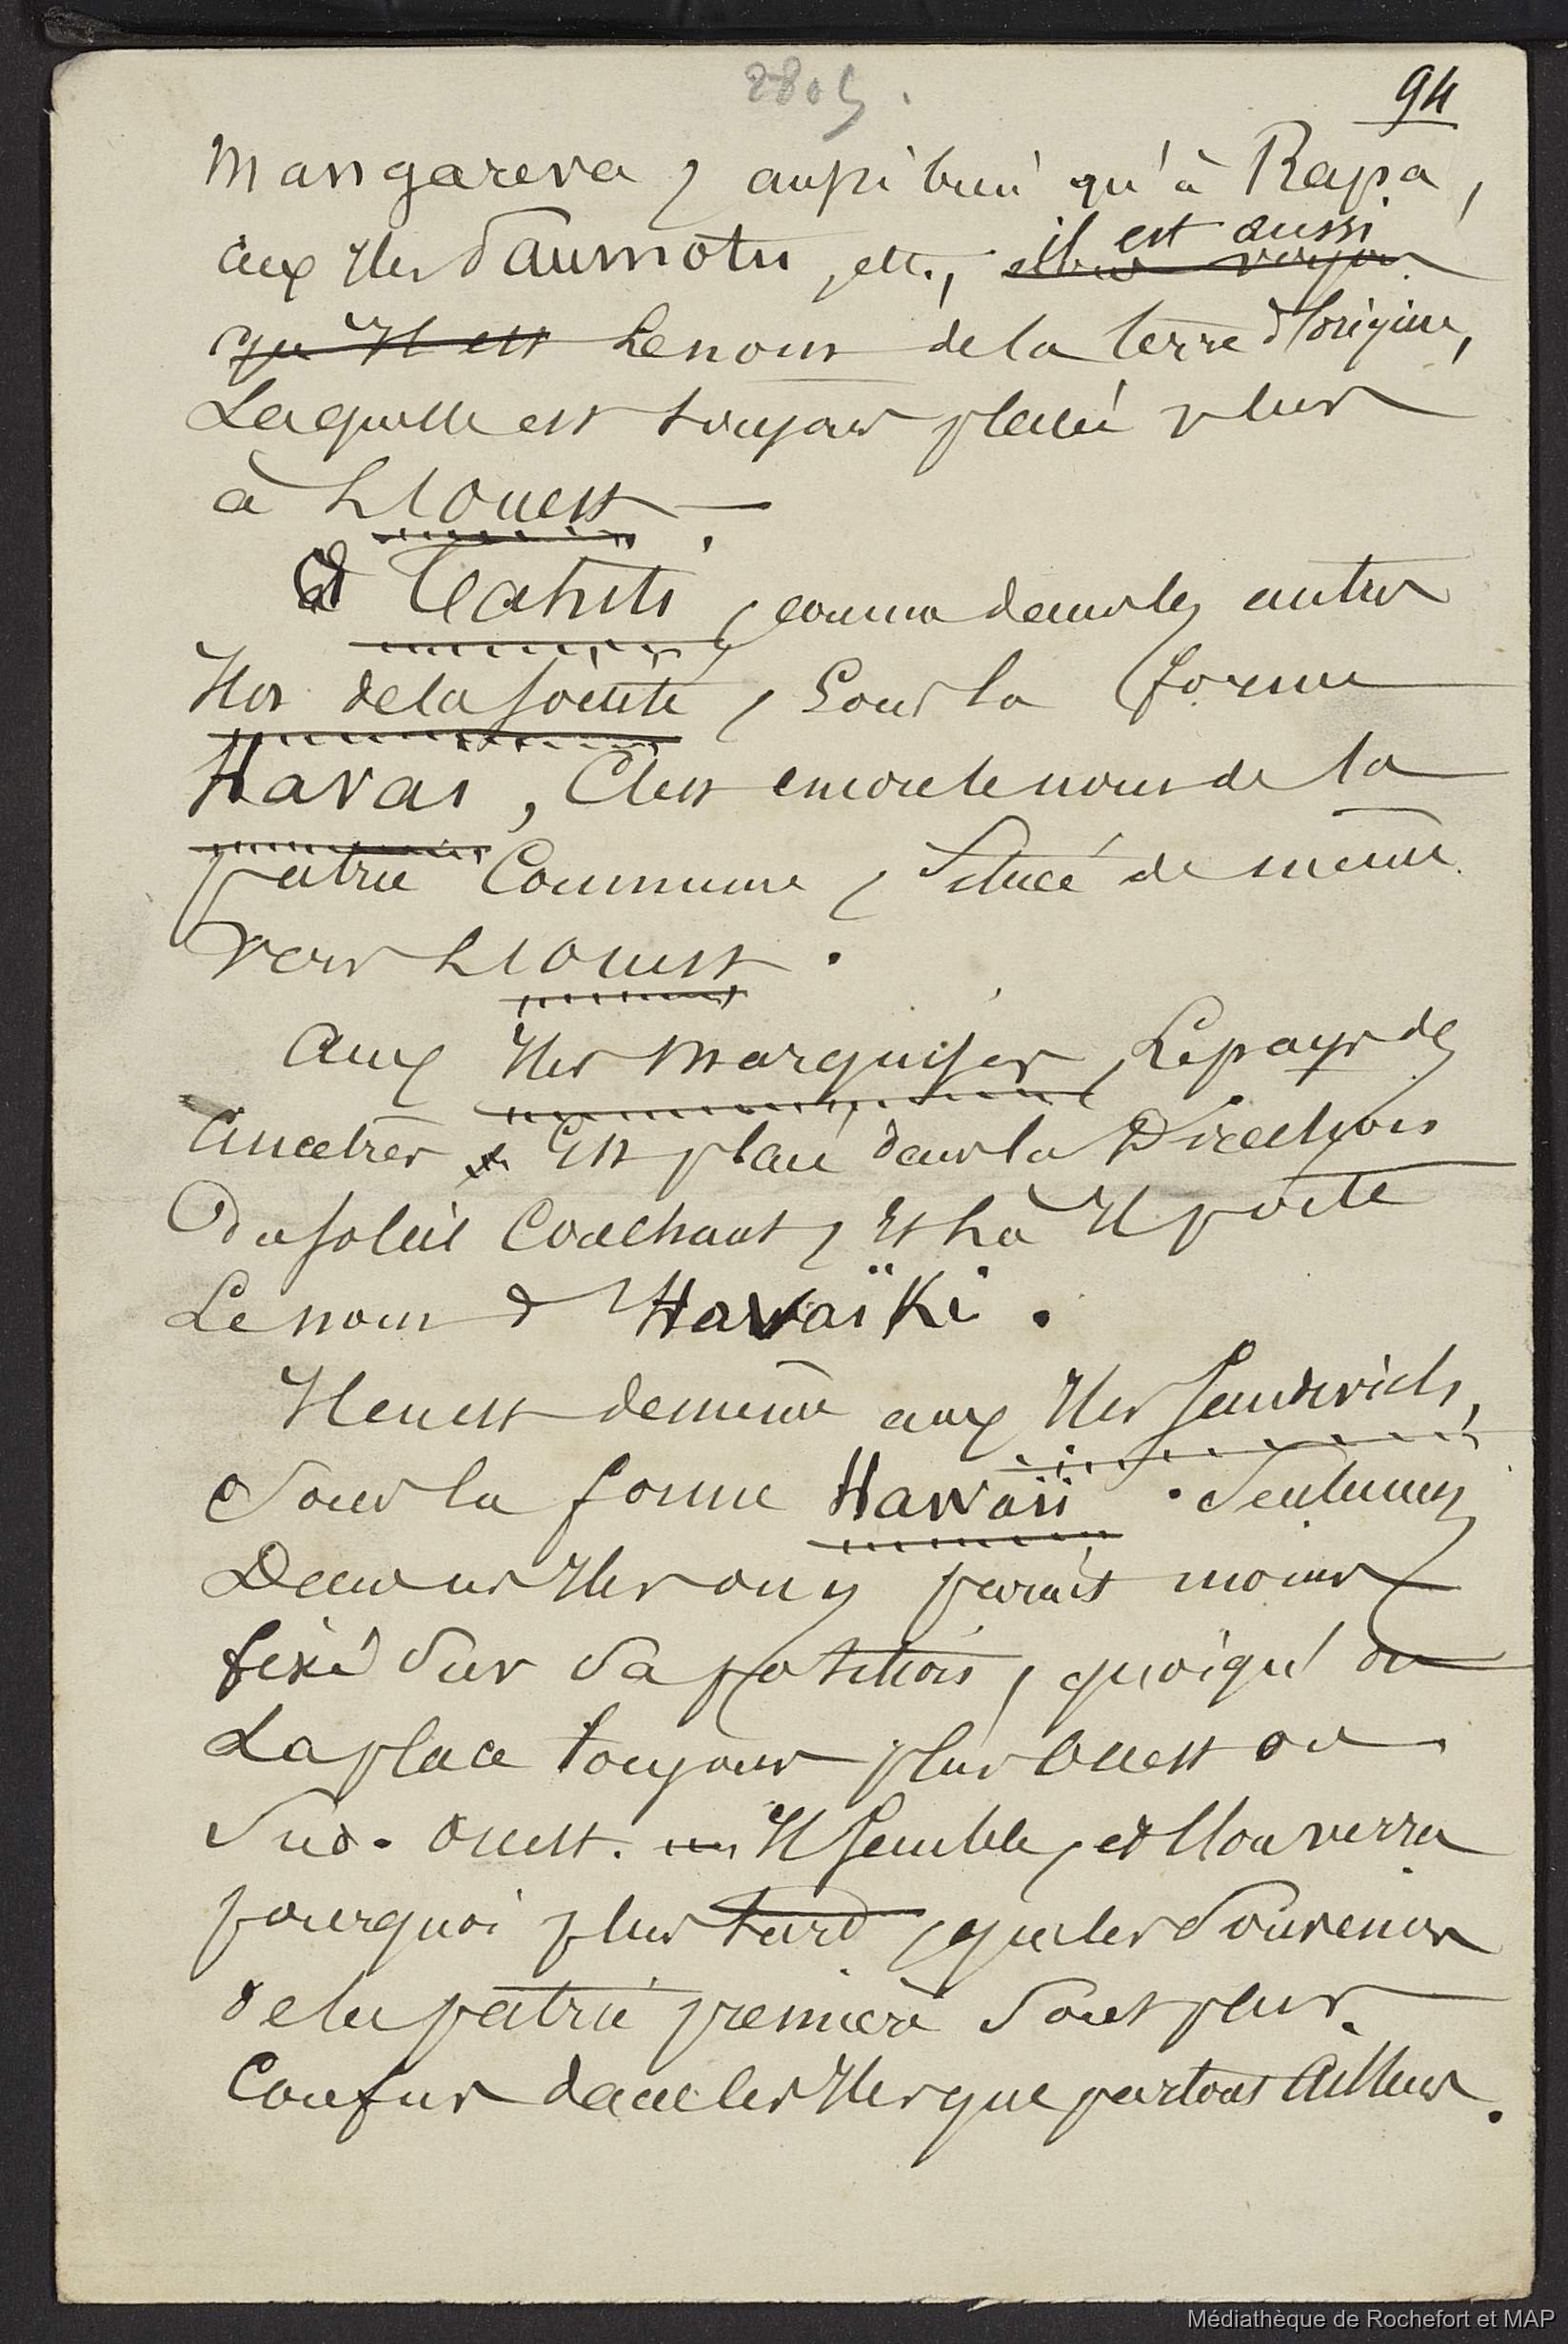 2805.
94
Mangareva, aussi bien qu'à Rapa,
il est aussi
aux Iles Paumotu, etc., nous voyons
qu'Il est Le nom de la terre d'origine,
Laquelle est toujours placée plus
à L'Ouest.
à Tahiti, comme dans les autres
Iles de la Société, Sous la forme
Havaï, C'est encore le nom de la
patrie Commune, Située de même
vers L'Ouest.
Aux Iles Marquises, Le pays des
Ancêtres Est placé dans la Direction
Du Soleil Couchant, Et Là Il porte
Le nom d'Havaïki.
Il en est de même aux Iles Sandwich,
Sous la forme Hawaïi. Seulement
Dans ces Iles on y parait moins
fixé Sur Sa position, quoiqu'on
La place toujours plus Ouest ou
Sud-Ouest. Il Semble, et l'on verra
pourquoi plus tard, que les Souvenirs
de la patrie première Sont plus
Confus dans les Iles que partout Ailleurs.
Médiathèque de Rochefort et MAP